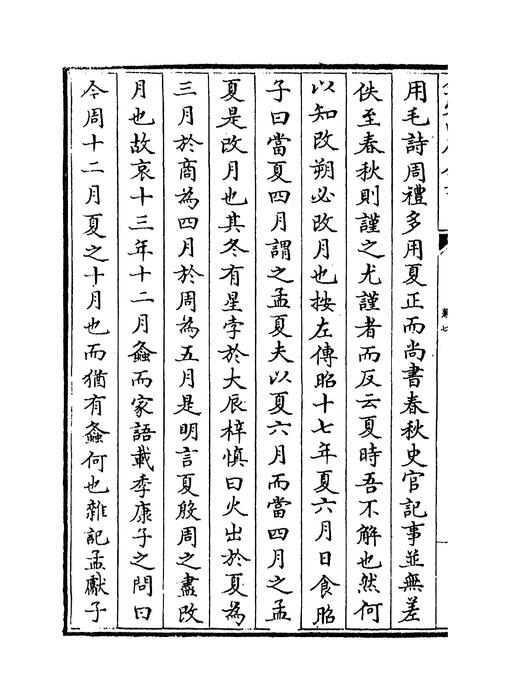 用毛詩周禮多用夏正而尚書春秋史官記事並無差
佚至春秋則謹之尤謹者而反云夏時吾不解也然何
以知改朔必改月也按左傳昭十七年夏六月日食昭
子曰當夏四月謂之孟夏夫以夏六月而當四月之孟
夏是改月也其冬有星孛於大辰梓慎曰火出於夏為
三月於商為四月於周為五月是明言夏殷周之盡改
月也故哀十三年十二月螽而家語載季康子之問曰
今周十二月夏之十月也而猶有螽何也雜記孟獻子